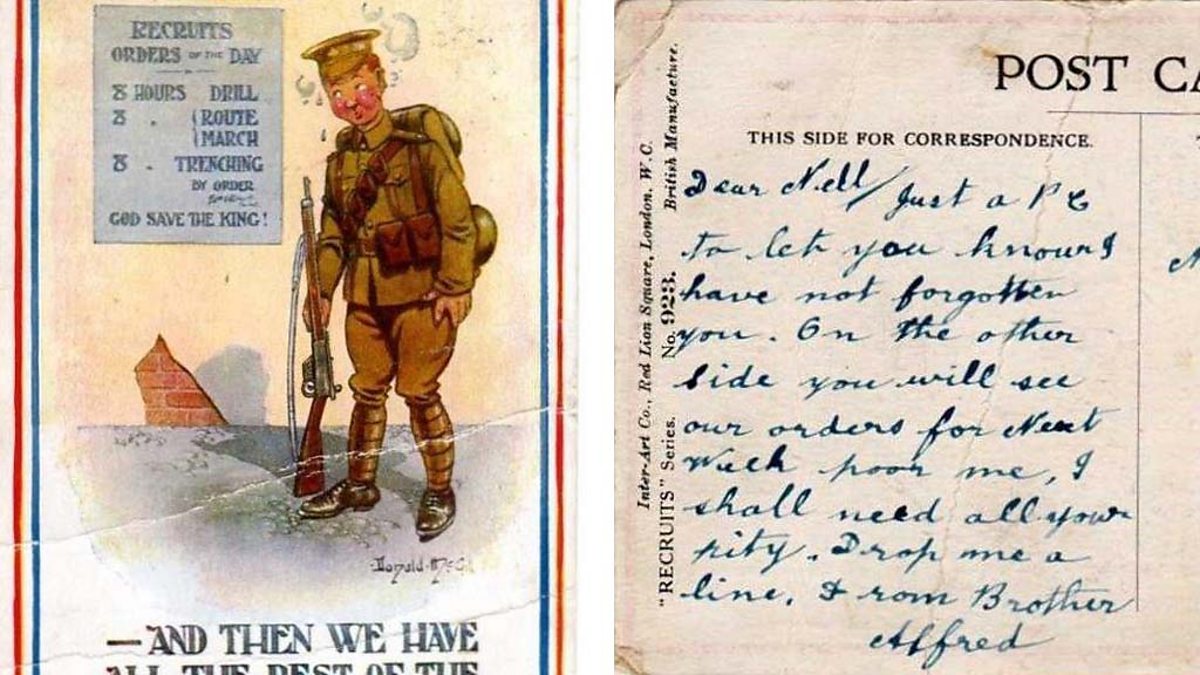 RECRUITS
ORDERS OF THE DAY
8 HOURS DRILL
8 . (ROUTE
(MARCH
8 . TRENCHING
BY ORDER
GOD SAVE THE KING!
Donald McG
— AND THEN WE HAVE
ALL THE REST OF THE
POST CA
THIS SIDE FOR CORRESPONDENCE.
Inter-Art Co., Red Lion Square, London. W.C. British Manufacture.
"RECRUITS" Series. No. 923.
Dear Nell/Just a P C
to let you know I
have not forgotten
you. On the other
side you will see
our orders for Next
Week poor me, I
shall need all your
pity. Drop me a
line. From Brother
Alfred